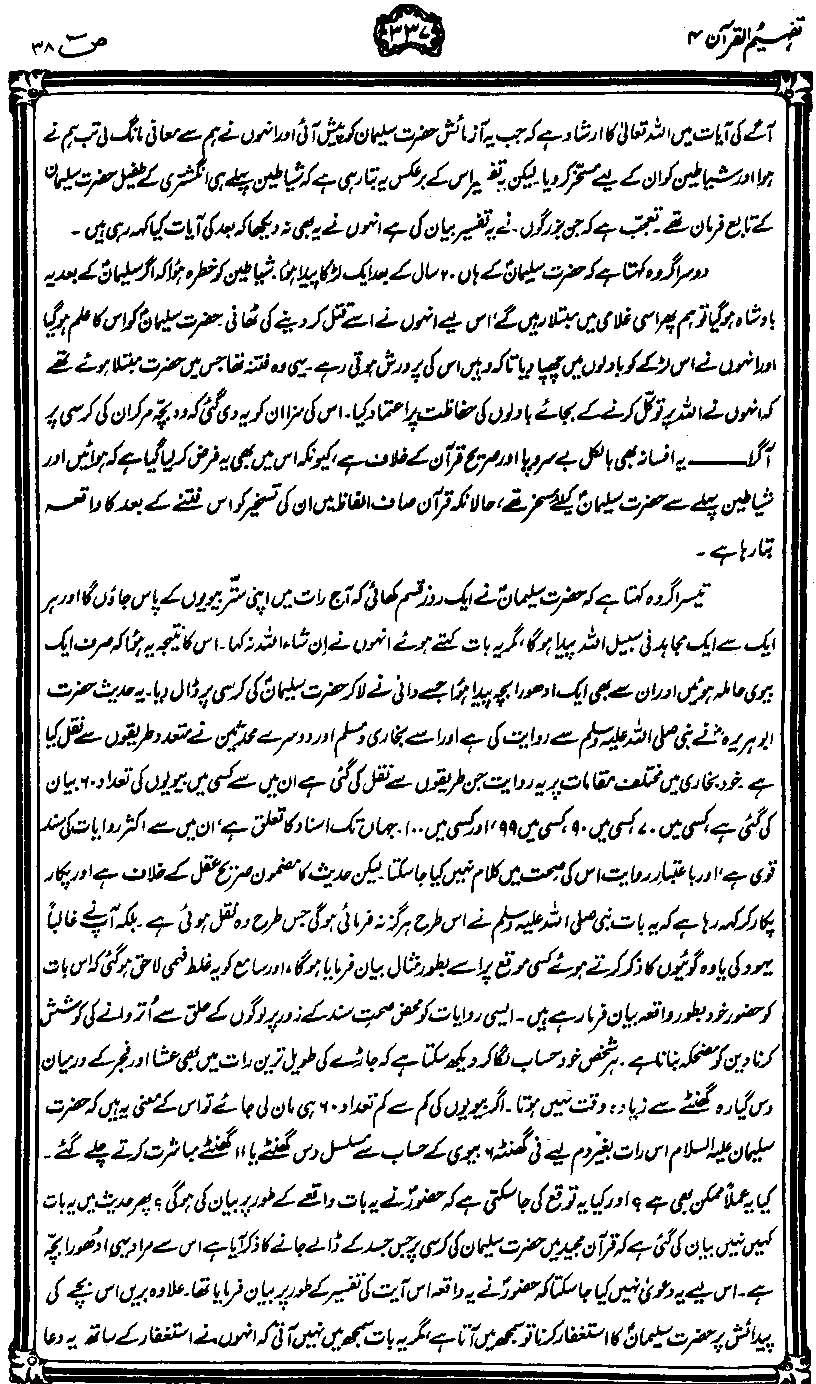 تفہیم القرآن ۴
۳۳۷
صٓ ۳۸
آگے کی آیات میں اللہ تعالیٰ کا ارشاد ہے کہ جب یہ آزمائش حضرت سلیمان کو پیش آئی اور انہوں نے ہم سے معافی مانگ لی تب ہم نے
ہوا اور شیاطین کو ان کے لیے مسخّر کر دیا۔ لیکن یہ تفسیر اس کے برعکس یہ بتا رہی ہے کہ شیاطین پہلے ہی انگشتری کے طفیل حضرت سلیمانؑ
کے تابع فرمان تھے۔ تعجب ہے کہ جن بزرگوں نے یہ تفسیر بیان کی ہے انہوں نے یہ بھی نہ دیکھا کہ بعد کی آیات کیا کہہ رہی ہیں۔
دوسرا گروہ کہتا ہے کہ حضرت سلیمانؑ کے ہاں ۲۰ سال کے بعد ایک لڑکا پیدا ہوا۔ شیاطین کو خطرہ ہوا کہ اگر سلیمانؑ کے بعد یہ
بادشاہ ہو گیا تو ہم پھر اسی غلامی میں مبتلا رہیں گے، اس لیے انہوں نے اسے قتل کر دینے کی ٹھانی۔ حضرت سلیمانؑ کو اس کا علم ہو گیا
اور انہوں نے اس لڑکے کو بادلوں میں چھپا دیا تاکہ وہیں اس کی پرورش ہوتی رہے۔ یہی وہ فتنہ تھا جس میں حضرت مبتلا ہوئے تھے
کہ انہوں نے اللہ پر توکّل کرنے کے بجائے بادلوں کی حفاظت پر اعتماد کیا۔ اس کی سزا ان کو یہ دی گئی کہ وہ بچّہ مر کر ان کی کرسی پر
آ گرا ــــــــ یہ افسانہ بھی بالکل بے سر و پا اور صریح قرآن کے خلاف ہے، کیونکہ اس میں بھی یہ فرض کر لیا گیا ہے کہ ہوائیں اور
شیاطین پہلے سے حضرت سلیمانؑ کیلئے مسخر تھے، حالانکہ قرآن صاف الفاظ میں ان کی تسخیر کو اس فتنے کے بعد کا واقعہ
بتا رہا ہے۔
تیسرا گروہ کہتا ہے کہ حضرت سلیمانؑ نے ایک روز قسم کھائی کہ آج رات میں اپنی ستّر بیویوں کے پاس جاؤں گا اور ہر
ایک سے ایک مجاہد فی سبیل اللہ پیدا ہوگا، مگر یہ بات کہتے ہوئے انہوں نے اِن شاء اللہ نہ کہا۔ اس کا نتیجہ یہ ہوا کہ صرف ایک
بیوی حاملہ ہوئیں اور ان سے بھی ایک ادھورا بچہ پیدا ہوا جسے دائی نے لا کر حضرت سلیمانؑ کی کرسی پر ڈال دیا۔ یہ حدیث حضرت
ابوہریرہؓ نے نبی صلی اللہ علیہ وسلم سے روایت کی ہے اور اسے بخاری و مسلم اور دوسرے محدثین نے متعدد طریقوں سے نقل کیا
ہے۔ خود بخاری میں مختلف مقامات پر یہ روایت جن طریقوں سے نقل کی گئی ہے ان میں سے کسی میں بیویوں کی تعداد ۶۰ بیان
کی گئی ہے، کسی میں ۷۰، کسی میں ۹۰، کسی میں ۹۹، اور کسی میں ۱۰۰۔ جہاں تک اسناد کا تعلق ہے، ان میں سے اکثر روایات کی سند
قوی ہے، اور باعتبار روایت اس کی صحت میں کلام نہیں کیا جا سکتا۔ لیکن حدیث کا مضمون صریح عقل کے خلاف ہے اور پکار
پکار کر کہہ رہا ہے کہ یہ بات نبی صلی اللہ علیہ وسلم نے اس طرح ہرگز نہ فرمائی ہوگی جس طرح وہ نقل ہوئی ہے۔ بلکہ آپؐ نے غالباً
یہود کی یاوہ گوئیوں کا ذکر کرتے ہوئے کسی موقع پر اسے بطور مثال بیان فرمایا ہوگا، اور سامع کو یہ غلط فہمی لاحق ہو گئی کہ اس بات
کو حضور خود بطور واقعہ بیان فرما رہے ہیں۔ ایسی روایات کو محض صحت سند کے زور پر لوگوں کے حلق سے اُتروانے کی کوشش
کرنا دین کو مضحکہ بنانا ہے۔ ہر شخص خود حساب لگا کر دیکھ سکتا ہے کہ جاڑے کی طویل ترین رات میں بھی عشا اور فجر کے درمیان
دس گیارہ گھنٹے سے زیادہ وقت نہیں ہوتا۔ اگر بیویوں کی کم سے کم تعداد ۶۰ ہی مان لی جائے تو اس کے معنی یہ ہیں کہ حضرت
سلیمان علیہ السلام اس رات بغیر دم لیے فی گھنٹہ ۶ بیوی کے حساب سے مسلسل دس گھنٹے یا ۱۱ گھنٹے مباشرت کرتے چلے گئے۔
کیا یہ عملاً ممکن بھی ہے؟ اور کیا یہ توقع کی جا سکتی ہے کہ حضورؐ نے یہ بات واقعے کے طور پر بیان کی ہوگی؟ پھر حدیث میں یہ بات
کہیں نہیں بیان کی گئی ہے کہ قرآن مجید میں حضرت سلیمان کی کرسی پر جس جسد کے ڈالے جانے کا ذکر آیا ہے اس سے مراد یہی ادھورا بچّہ
ہے۔ اس لیے یہ دعویٰ نہیں کیا جا سکتا کہ حضورؐ نے یہ واقعہ اس آیت کی تفسیر کے طور پر بیان فرمایا تھا۔ علاوہ بریں اس بچے کی
پیدائش پر حضرت سلیمانؑ کا استغفار کرنا تو سمجھ میں آتا ہے، مگر یہ بات سمجھ میں نہیں آتی کہ انہوں نے استغفار کے ساتھ یہ دعا